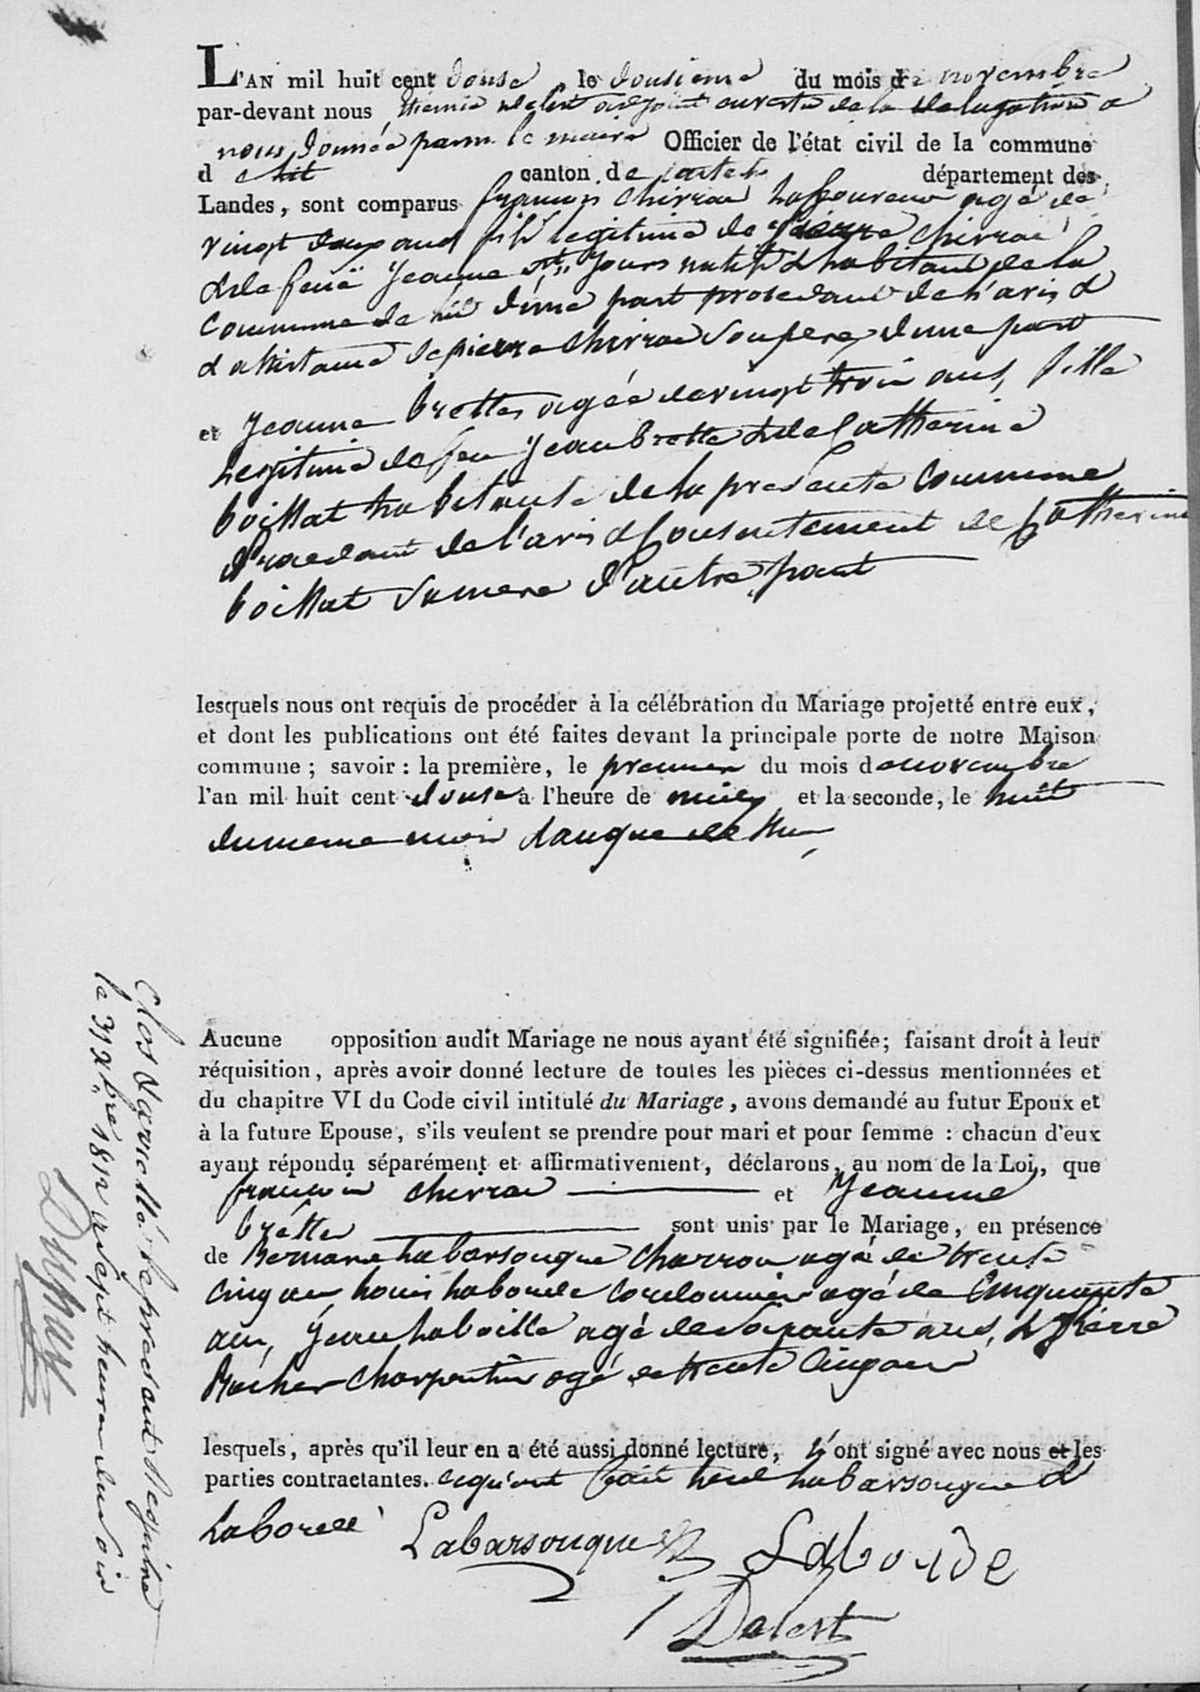 L'AN mil huit cent douse le dousieme du mois de novembre
par-devant nous, adjoint en vertu de la delegation a
nous donnée par mr le maire Officier de l'état civil de la commune
d canton de département des
Landes, sont comparus françois chivrac laboureur agé de
vingt deux ans fils legitime de pierre chivrac
& de feue Jeanne natif & habitant de la
commune de d'une part procedant de l'avis &
d'assistance de pierre chivrac son pere d'une part
et Jeanne brettes agée de vingt trois ans, fille
legitime de feu Jean brette & de Catherine
boissat habitante de la presente commune
procedant de l'avis & consentement de Catherine
boissat sa mere d'autre part
lesquels nous ont requis de procéder à la célébration du Mariage projetté entre eux,
et dont les publications ont été faites devant la principale porte de notre Maison
commune; savoir: la première, le premier du mois de novembre
l'an mil huit cent douse à l'heure de midy et la seconde, le huit
du meme mois
Aucune opposition audit Mariage ne nous ayant été signifiée; faisant droit à leur
réquisition, après avoir donné lecture de toutes les pièces ci-dessus mentionnées et
du chapitre VI du Code civil intitulé du Mariage, avons demandé au futur Epoux et
à la future Epouse, s'ils veulent se prendre pour mari et pour femme: chacun d'eux
ayant répondu séparément et affirmativement, déclarons, au nom de la Loi, que
françois chivrac et Jeanne
brette sont unis par le Mariage, en présence
de Bernard labarsouque charron agé de trente
cinq ans louis laborde cordonnier agé de Cinquante
ans, Jean agé de soixante ans, & Pierre
charpentier agé de trente cinq ans
lesquels, après qu'il leur en a été aussi donné lecture, n'ont signé avec nous et les
parties contractantes. ce qu'ont fait seul labarsouque &
laborde
Labarsouque Laborde
Dalest
Clos & arretté le present registre
le 31 Xbre 1812 a sept heures du soir